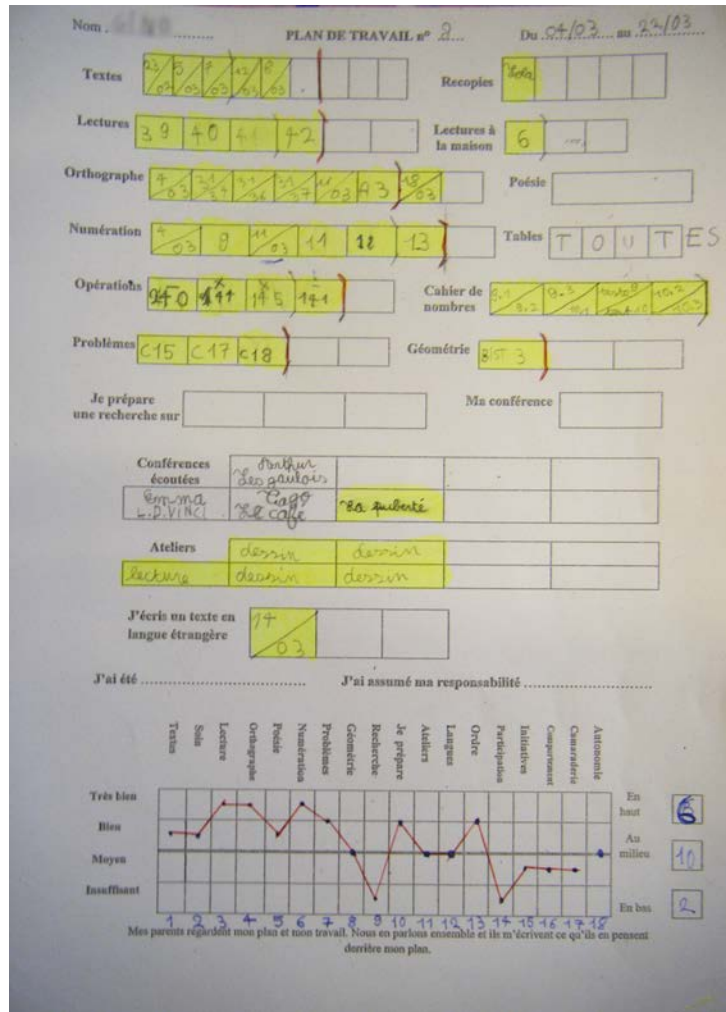 Nom . ......... PLAN DE TRAVAIL n° 8... Du 04/03... au 22/03
Textes 23/02 5/03 7/03 12/03 8/03 Recopies
Lectures 39 40 41 42 Lectures à la maison 6
Orthographe 4/03 31 34 31 36 31 37 11/03 A3 18/03 Poésie
Numération 4/03 9 11/03 11 12 13 Tables TOUTES
Opérations 145 141 Cahier de nombres 9.1 9.2 9.3 10.1 10.2 10.3
Problèmes C15 C17 C18 Géométrie BIST 3
Je prépare une recherche sur Ma conférence
Conférences écoutées Arthur Les gaulois
Emma L.D.VINCI Le café La puberté
Ateliers dessin dessin
lecture dessin dessin
J'écris un texte en langue étrangère 14/03
J'ai été .................... J'ai assumé ma responsabilité ....................
Textes Soin Lecture Orthographe Poésie Numération Problèmes Géométrie Recherche Je prépare Ateliers Langues Ordre Participation Initiatives Comportement Camaraderie Autonomie
Très bien En haut 6
Bien
Moyen Au milieu 10
Insuffisant
En bas 2
1 2 3 4 5 6 7 8 9 10 11 12 13 14 15 16 17 18
Mes parents regardent mon plan et mon travail. Nous en parlons ensemble et ils m'écrivent ce qu'ils en pensent
derrière mon plan.